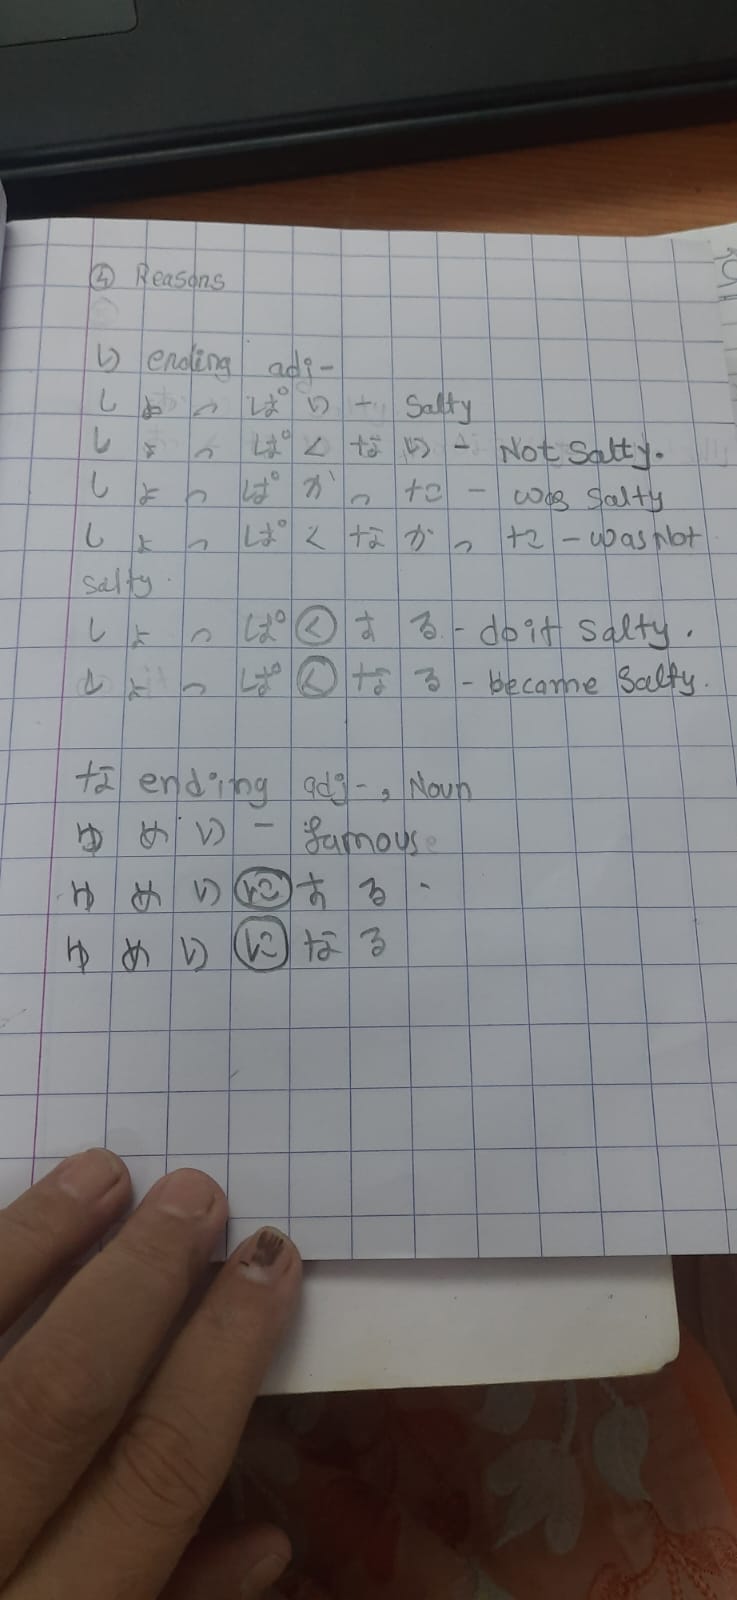 ④ Reasons
い ending adj-
しょっぱい + Salty
しょっぱくない - Not Salty.
しょっぱかった - was Salty
しょっぱくなかった - was Not
salty.
しょっぱくする - do it salty.
しょっぱくなる - become Salty.
な ending adj-, Noun
ゆめい - famous
ゆめいにする -
ゆめいになる